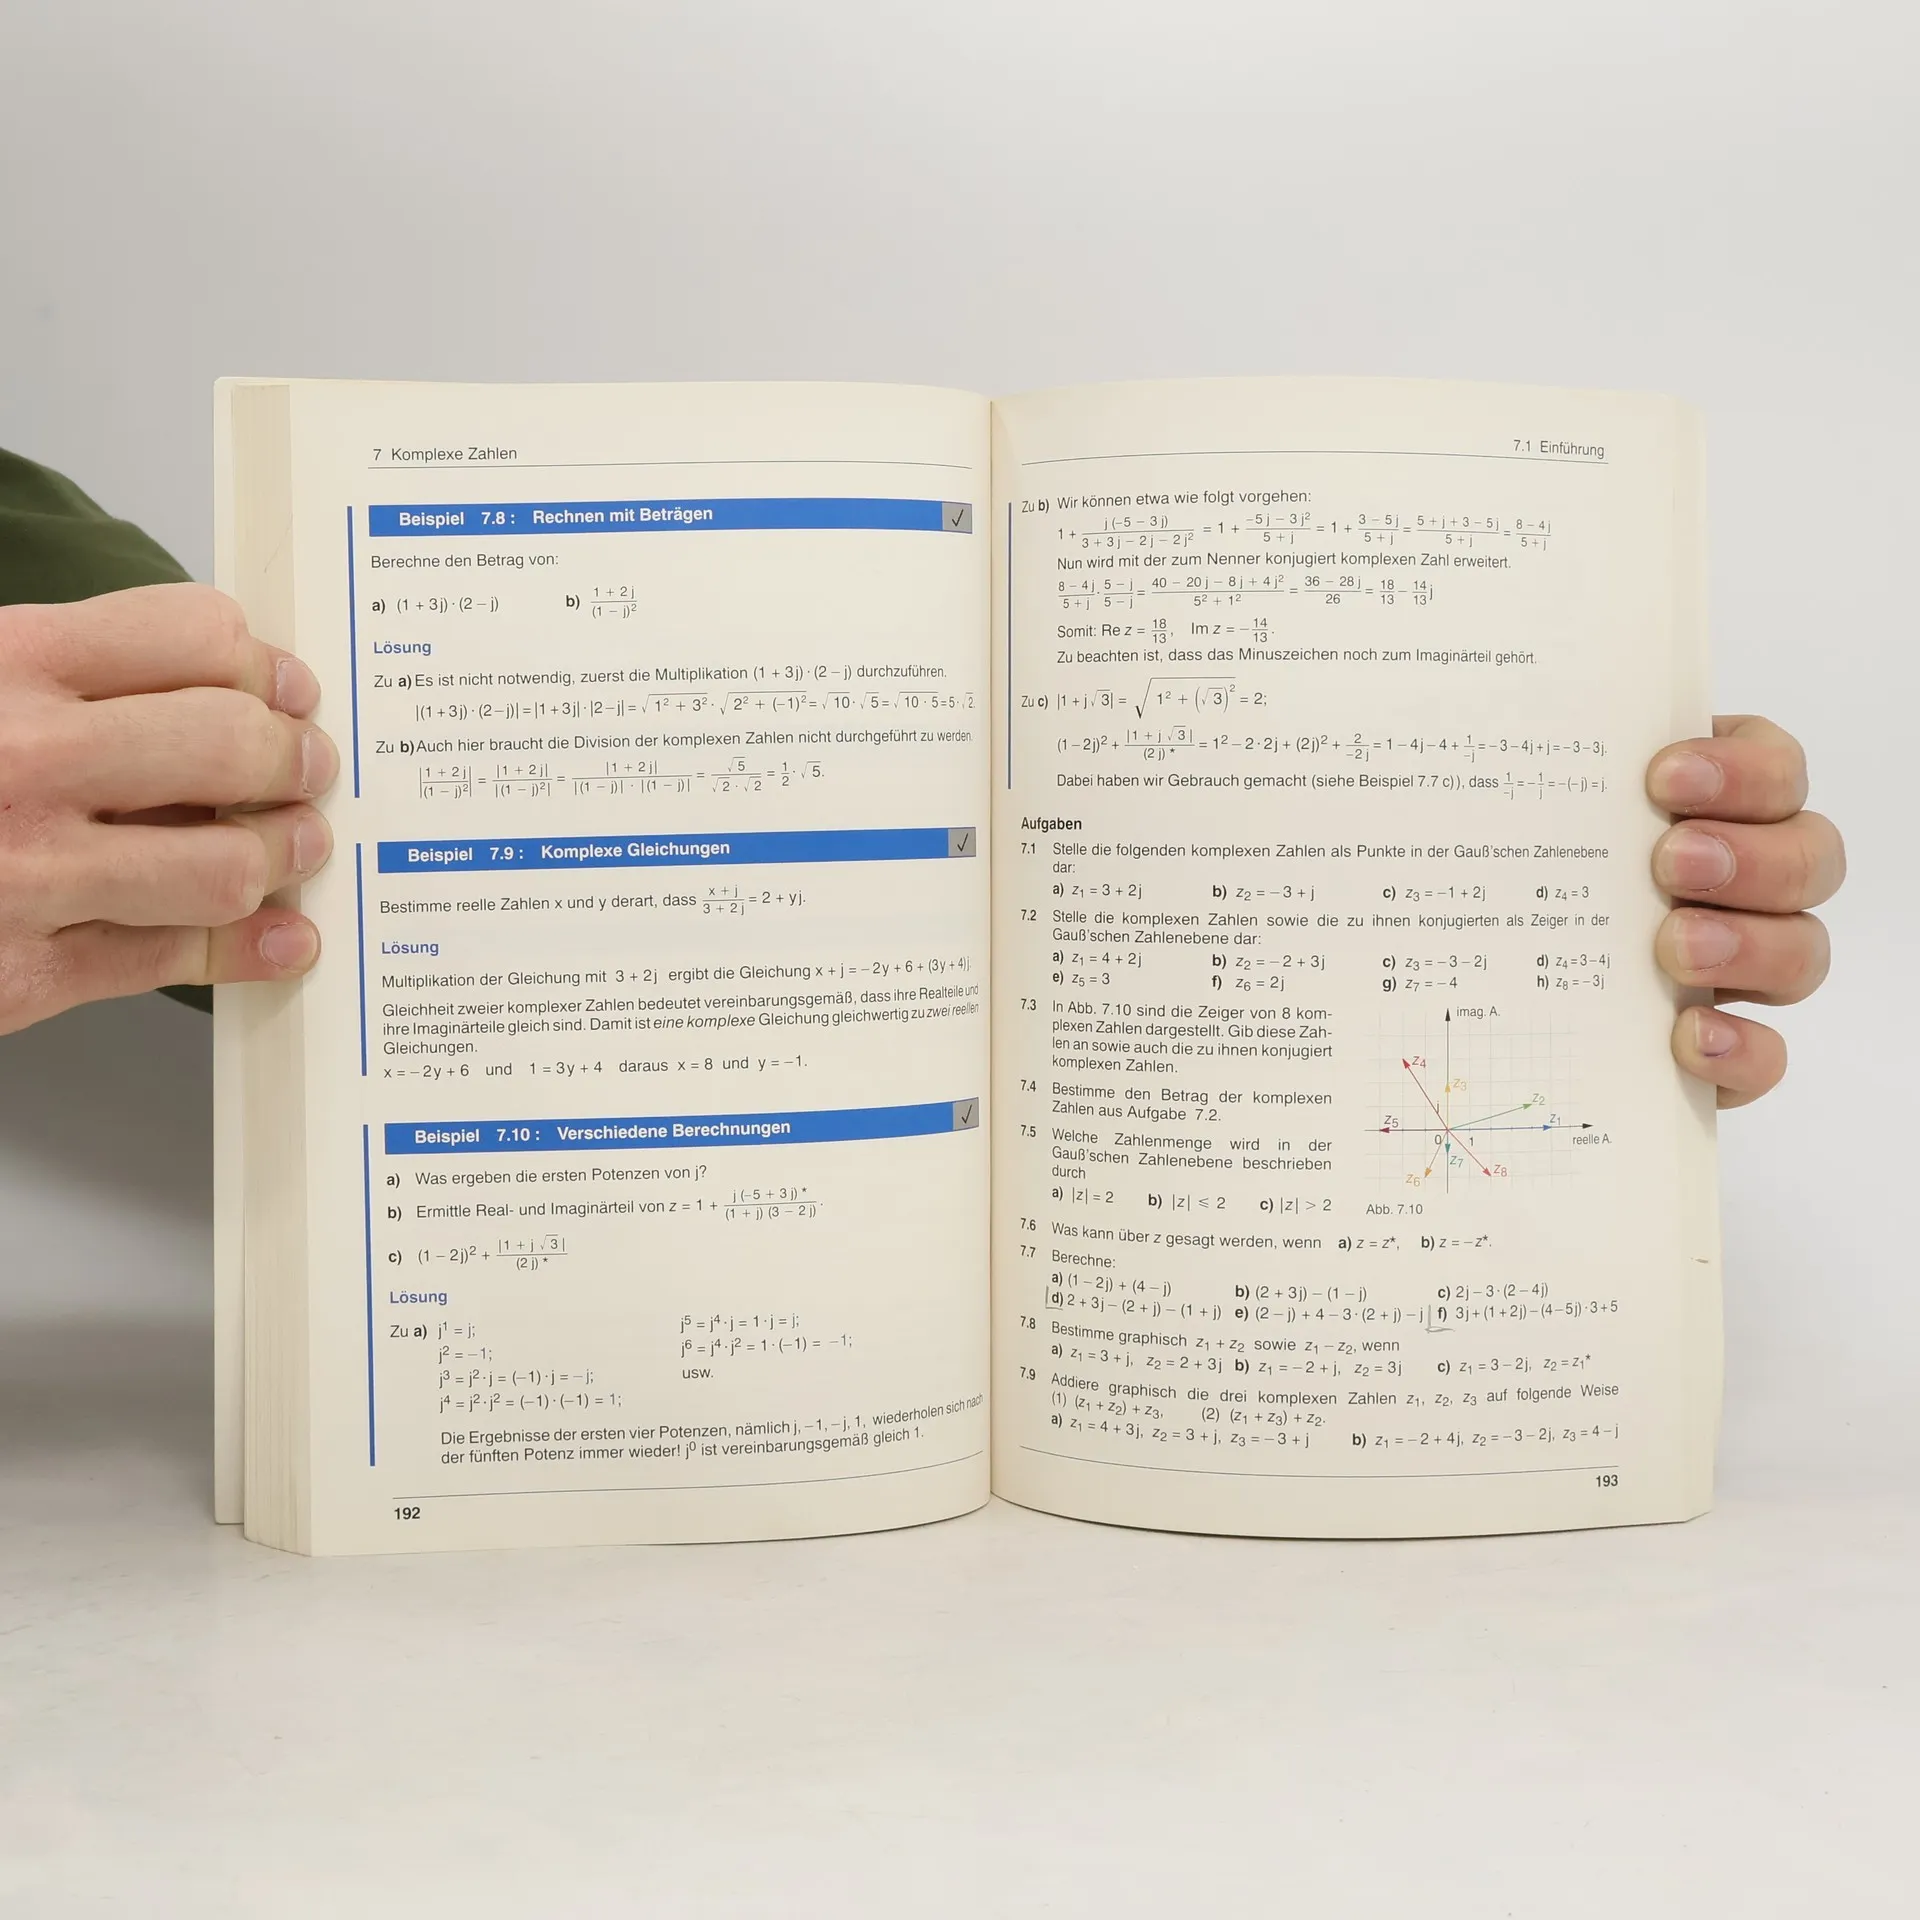 7 Komplexe Zahlen
Beispiel 7.8 : Rechnen mit Beträgen ✓
Berechne den Betrag von:
a) (1 + 3j) · (2 – j) b) (1 + 2j)/(1 – j)²
Lösung
Zu a) Es ist nicht notwendig, zuerst die Multiplikation (1 + 3j) · (2 – j) durchzuführen.
|(1 + 3j) · (2 – j)| = |1 + 3j| · |2 – j| = √(1² + 3²) · √(2² + (–1)²) = √10 · √5 = √(10 · 5) = 5 · √2
Zu b) Auch hier braucht die Division der komplexen Zahlen nicht durchgeführt zu werden.
|(1 + 2j)/(1 – j)²| = |1 + 2j|/|(1 – j)²| = |1 + 2j|/(|(1 – j)| · |(1 – j)|) = √5/(√2 · √2) = 1/2 · √5.
Beispiel 7.9 : Komplexe Gleichungen ✓
Bestimme reelle Zahlen x und y derart, dass (x + j)/(3 + 2j) = 2 + yj.
Lösung
Multiplikation der Gleichung mit 3 + 2j ergibt die Gleichung x + j = – 2y + 6 + (3y + 4)j.
Gleichheit zweier komplexer Zahlen bedeutet vereinbarungsgemäß, dass ihre Realteile und
ihre Imaginärteile gleich sind. Damit ist eine komplexe Gleichung gleichwertig zu zwei reellen
Gleichungen.
x = – 2y + 6 und 1 = 3y + 4 daraus x = 8 und y = –1.
Beispiel 7.10 : Verschiedene Berechnungen ✓
a) Was ergeben die ersten Potenzen von j?
b) Ermittle Real- und Imaginärteil von z = 1 + j(–5 + 3j)*/((1 + j)(3 – 2j)).
c) (1 – 2j)² + |1 + j√3|/(2j)*
Lösung
Zu a) j¹ = j; j⁵ = j⁴ · j = 1 · j = j;
j² = –1; j⁶ = j⁴ · j² = 1 · (–1) = –1;
j³ = j² · j = (–1) · j = – j; usw.
j⁴ = j² · j² = (–1) · (–1) = 1;
Die Ergebnisse der ersten vier Potenzen, nämlich j, –1, –j, 1, wiederholen sich nach
der fünften Potenz immer wieder! j⁰ ist vereinbarungsgemäß gleich 1.
192
7.1 Einführung
Zu b) Wir können etwa wie folgt vorgehen:
1 + j(–5 – 3j)/(3 + 3j – 2j – 2j²) = 1 + (–5j – 3j²)/(5 + j) = 1 + (3 – 5j)/(5 + j) = (5 + j + 3 – 5j)/(5 + j) = (8 – 4j)/(5 + j)
Nun wird mit der zum Nenner konjugiert komplexen Zahl erweitert.
(8 – 4j)/(5 + j) · (5 – j)/(5 – j) = (40 – 20j – 8j + 4j²)/(5² + 1²) = (36 – 28j)/26 = 18/13 – 14/13 j
Somit: Re z = 18/13, Im z = – 14/13.
Zu beachten ist, dass das Minuszeichen noch zum Imaginärteil gehört.
Zu c) |1 + j√3| = √(1² + (√3)²) = 2;
(1 – 2j)² + |1 + j√3|/(2j)* = 1² – 2 · 2j + (2j)² + 2/–2j = 1 – 4j – 4 + 1/–j = – 3 – 4j + j = – 3 – 3j.
Dabei haben wir Gebrauch gemacht (siehe Beispiel 7.7 c)), dass 1/–j = – 1/j = –(–j) = j.
Aufgaben
7.1 Stelle die folgenden komplexen Zahlen als Punkte in der Gauß'schen Zahlenebene
dar:
a) z₁ = 3 + 2j b) z₂ = – 3 + j c) z₃ = – 1 + 2j d) z₄ = 3
7.2 Stelle die komplexen Zahlen sowie die zu ihnen konjugierten als Zeiger in der
Gauß'schen Zahlenebene dar:
a) z₁ = 4 + 2j b) z₂ = – 2 + 3j c) z₃ = – 3 – 2j d) z₄ = 3 – 4j
e) z₅ = 3 f) z₆ = 2j g) z₇ = – 4 h) z₈ = – 3j
7.3 In Abb. 7.10 sind die Zeiger von 8 kom-
plexen Zahlen dargestellt. Gib diese Zah-
len an sowie auch die zu ihnen konjugiert
komplexen Zahlen.
7.4 Bestimme den Betrag der komplexen
Zahlen aus Aufgabe 7.2.
7.5 Welche Zahlenmenge wird in der
Gauß'schen Zahlenebene beschrieben
durch
a) |z| = 2 b) |z| ⩽ 2 c) |z| > 2
imag. A.
z₄
z₃
z₂
j
z₅
z₁
0
1
reelle A.
z₇
z₆
z₈
Abb. 7.10
7.6 Was kann über z gesagt werden, wenn a) z = z*, b) z = – z*.
7.7 Berechne:
a) (1 – 2j) + (4 – j) b) (2 + 3j) – (1 – j) c) 2j – 3 · (2 – 4j)
d) 2 + 3j – (2 + j) – (1 + j) e) (2 – j) + 4 – 3 · (2 + j) – j f) 3j + (1 + 2j) – (4 – 5j) · 3 + 5
7.8 Bestimme graphisch z₁ + z₂ sowie z₁ – z₂, wenn
a) z₁ = 3 + j, z₂ = 2 + 3j b) z₁ = – 2 + j, z₂ = 3j c) z₁ = 3 – 2j, z₂ = z₁*
7.9 Addiere graphisch die drei komplexen Zahlen z₁, z₂, z₃ auf folgende Weise
(1) (z₁ + z₂) + z₃, (2) (z₁ + z₃) + z₂.
a) z₁ = 4 + 3j, z₂ = 3 + j, z₃ = – 3 + j b) z₁ = – 2 + 4j, z₂ = – 3 – 2j, z₃ = 4 – j
193